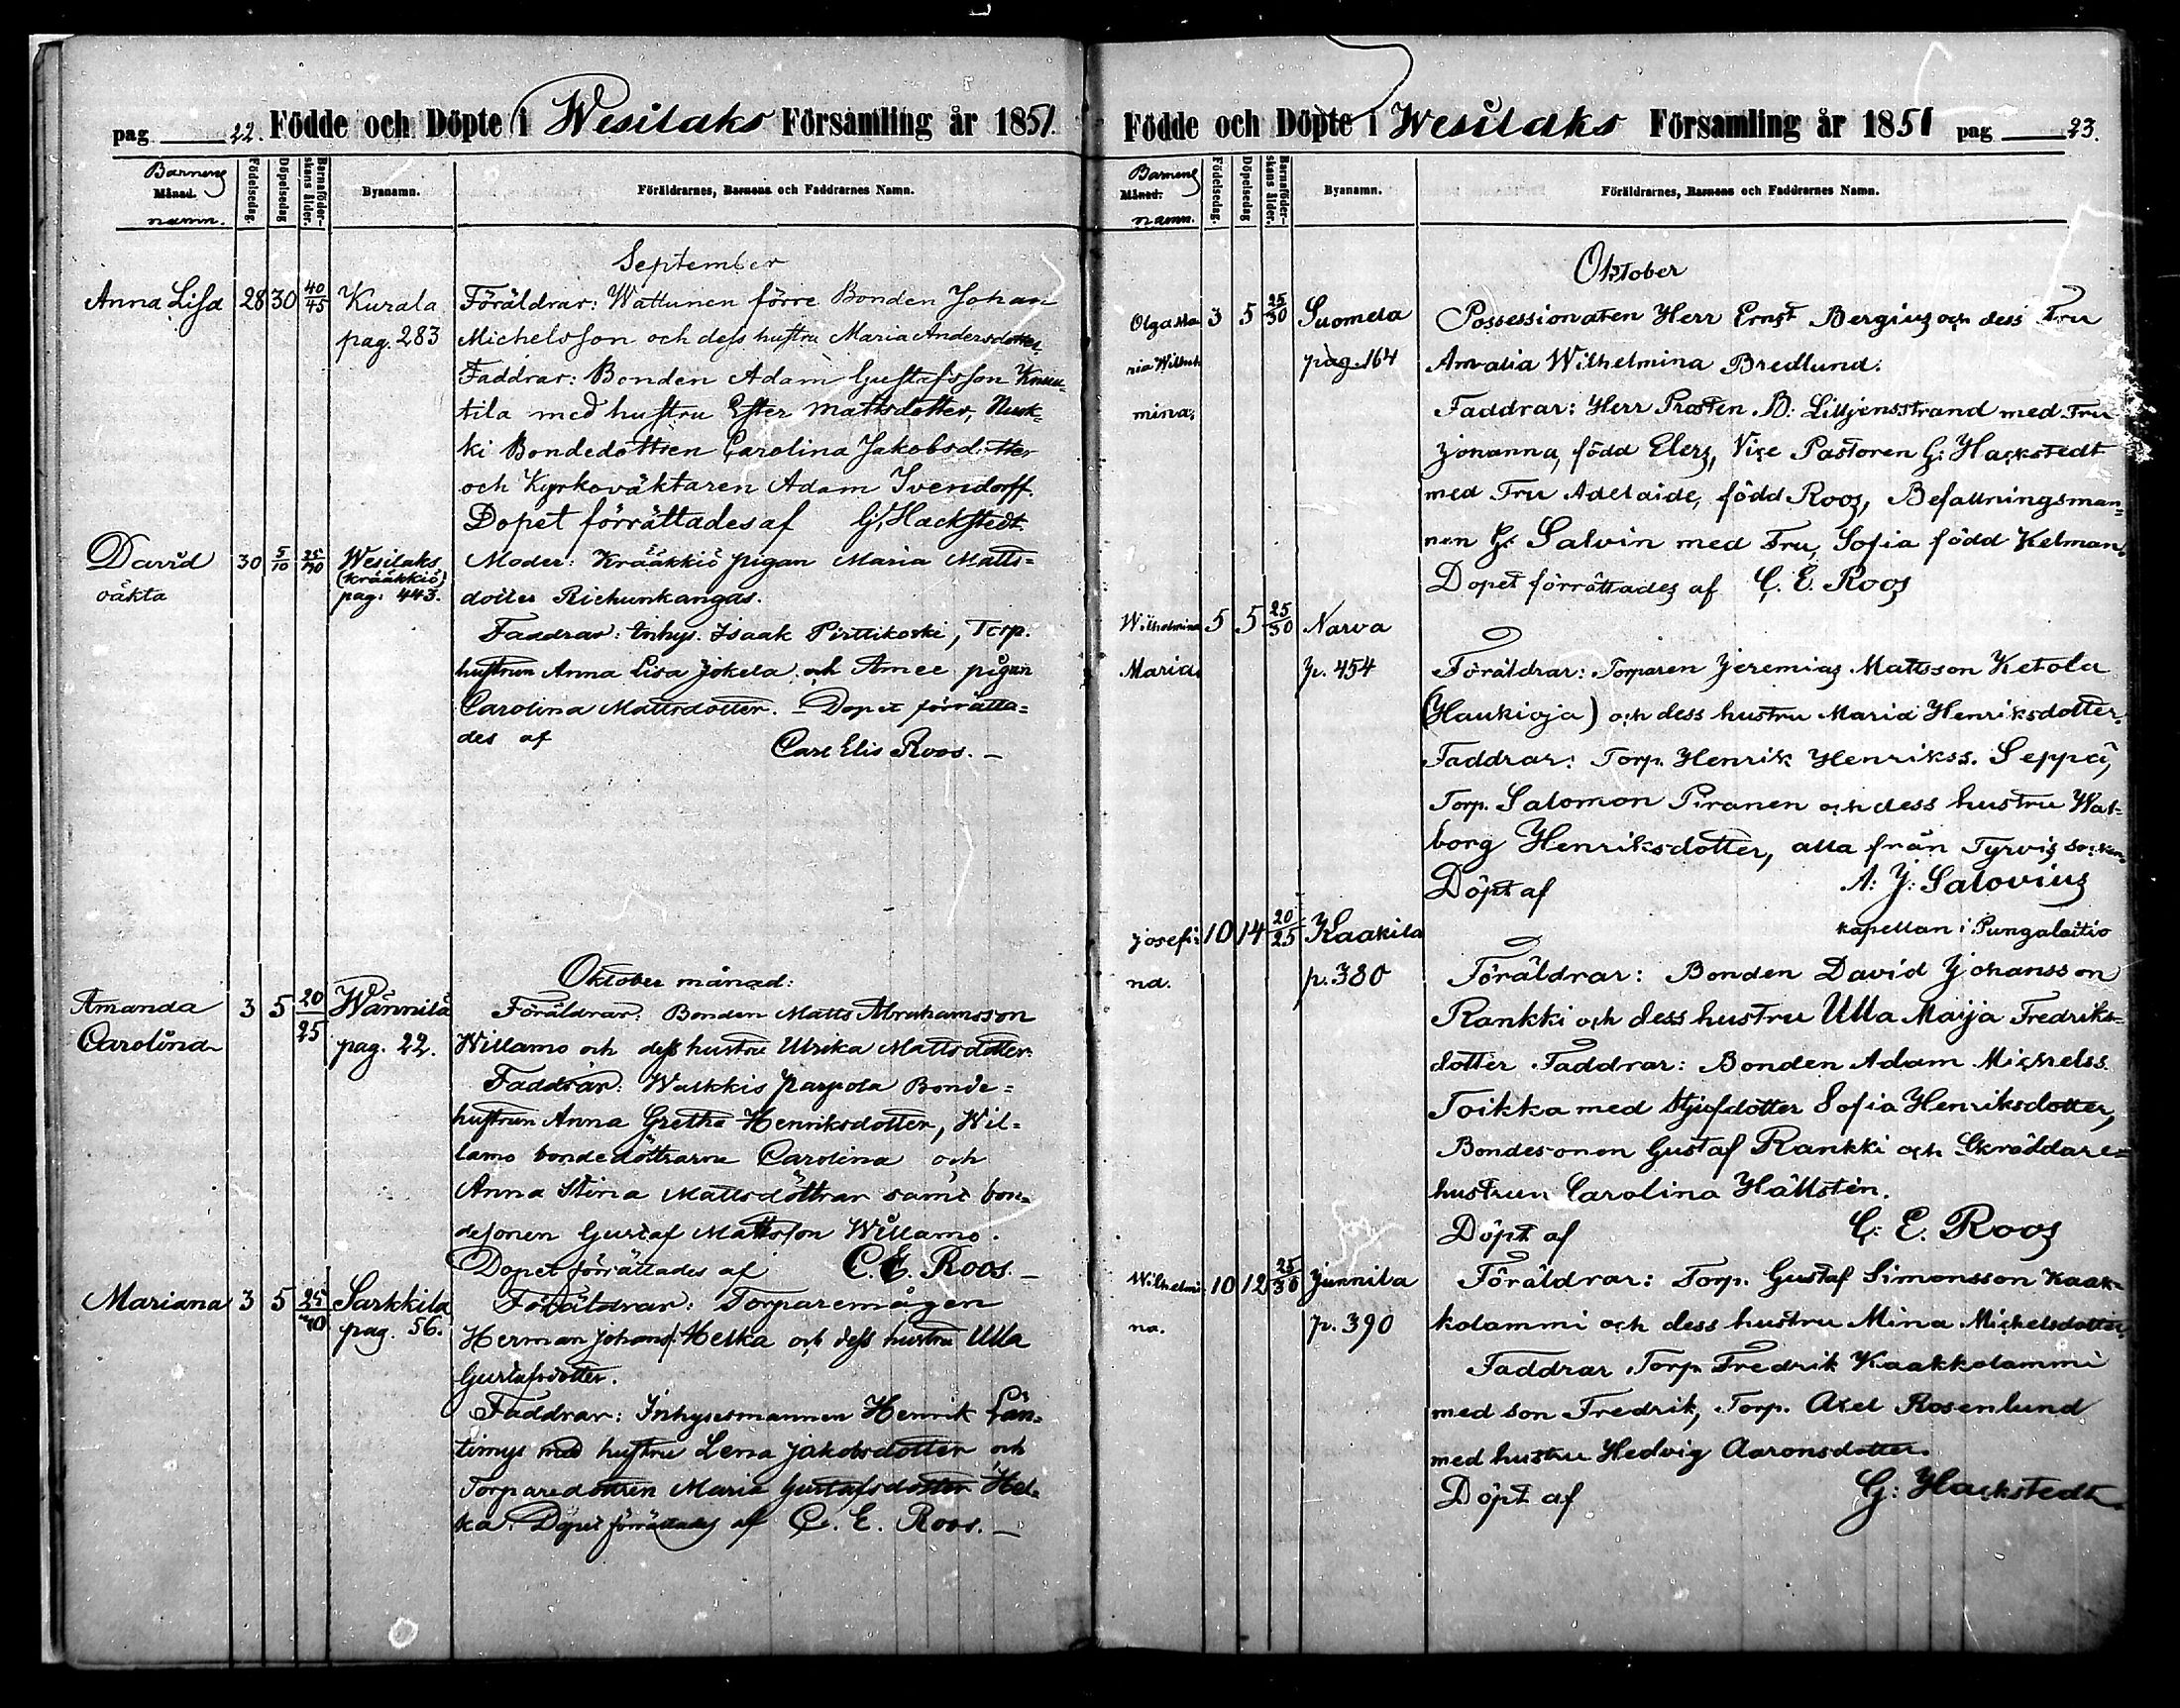 pag 22. Födde och Döpte i Wesilaks Församling år 1851.
Barnens
Månad.
namn.
Födelsedag.
Döpelsedag
Barnaföder-
skans ålder.
Byanamn.
Föräldrarnes, Barnens och Faddrarnes Namn.
September
Anna Lisa 28 30 40/45 Kurala
pag. 283
Föräldrar: Wattunen förre Bonden Johan
Michelsson och dess hustru Maria Andersdotter.
Faddrar: Bonden Adam Gustafsson Knuu-
tila med hustru Ester Mattsdotter, Nuuk-
ki Bondedottren Carolina Jakobsdotter
och Kyrkoväktaren Adam Ivendorff.
Dopet förrättades af G. Hackstedt
David 30 5/10 25/40 Wesilaks
oäkta
(Krääkkiö)
pag. 443.
Moder: Krääkkiö pigan Maria Matts-
dotter Riehunkangas.
Faddrar: Inhys. Isaak Pirttikoski, Torp.
hustrun Anna Lisa Jokela och Amee pigan
Carolina Mattsdotter. – Dopet förrätta-
des af Carl Elis Roos. –
Oktober månad:
Amanda 3 5 20/25 Wännilä
Carolina
pag. 22.
Föräldrar: Bonden Matts Abrahamsson
Willamo och dess hustru Ulrika Mattsdotter.
Faddrar: Walkkis Parpola Bonde-
hustrun Anna Gretha Henriksdotter, Wil-
lamo bondedöttrarne Carolina och
Anna Stina Mattsdöttrar samt bon-
desonen Gustaf Mattsson Willamo.
Dopet förrättades af C. E. Roos. –
Mariana 3 5 25/40 Sarkkila
pag. 56.
Föräldrar: Torparemågen
Herman Johans. Helka och dess hustru Ulla
Gustafsdotter.
Faddrar: Inhysesmannen Henrik Län-
timys med hustru Lena Jakobsdotter och
Torparedottren Maria Gustafsdotter Hel-
ka. Dopet förrättades af C. E. Roos. –
Födde och Döpte i Wesilaks Församling år 1851 pag 23.
Barnens
Månad.
namn.
Födelsedag.
Döpelsedag
Barnaföder-
skans ålder.
Byanamn.
Föräldrarnes, Barnens och Faddrarnes Namn.
Oktober
Olga Ma- 3 5 25/30 Suomela
ria Wilhel-
mina.
pag. 164
Possessionaten Herr Ernst Bergius och dess Fru
Amalia Wilhelmina Bredlund.
Faddrar: Herr Prosten B: Liljenstrand med Fru
Johanna, född Elers, Vice Pastoren G: Hackstedt
med Fru Adelaide, född Roos, Befallningsman-
nen G: Salvin med Fru, Sofia född Kelman.
Dopet förrättades af C. E. Roos
Wilhelmina 5 5 25/30 Narva
Maria.
p. 454
Föräldrar: Torparen Jeremias Mattsson Ketola
(Haukioja) och dess hustru Maria Henriksdotter.
Faddrar: Torp. Henrik Henrikss. Seppä,
Torp. Salomon Piranen och dess hustru Wal-
borg Henriksdotter, alla från Tyrvis socken.
Döpt af A. J. Salovius
kapellan i Pungalaitio
Josefi- 10 14 20/25 Kaakila
na.
p. 380
Föräldrar: Bonden David Johansson
Rankki och dess hustru Ulla Maija Fredriks-
dotter. Faddrar: Bonden Adam Michelss.
Toikka med Styfdotter Sofia Henriksdotter,
Bondesonen Gustaf Rankki och Skräddare-
hustrun Carolina Hällstén.
Döpt af C. E. Roos
Wilhelmi- 10 12 25/30 Junnila
na.
p. 390
Föräldrar: Torp. Gustaf Simonsson Kaak-
kolammi och dess hustru Mina Michelsdotter.
Faddrar Torp. Fredrik Kaakkolammi
med son Fredrik, Torp. Axel Rosenlund
med hustru Hedvig Aaronsdotter.
Döpt af G: Hackstedt.